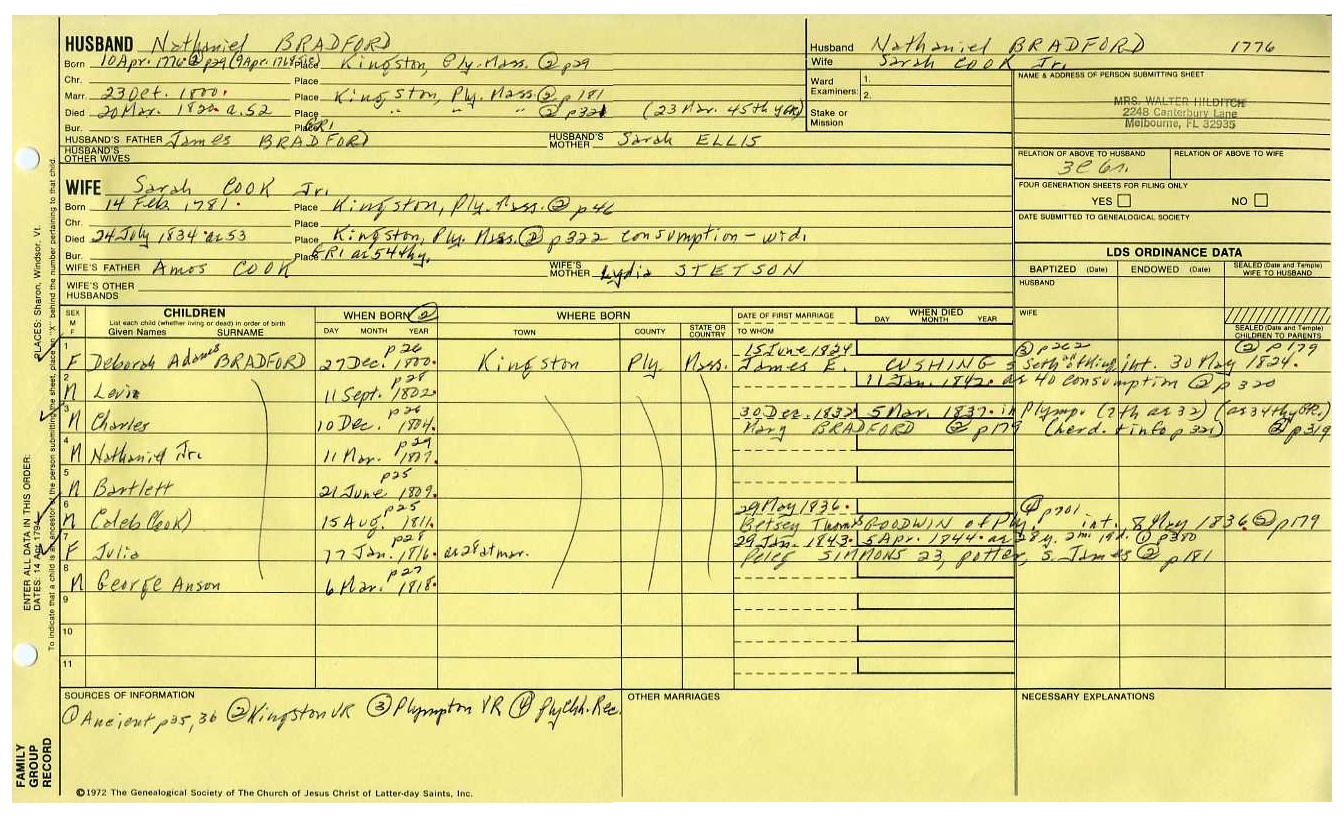 HUSBAND Nathaniel BRADFORD
Born 10 Apr. 1776 ② p29 (9 Apr. 1768 Place Kingston, Ply. Mass. ② p29
Chr. Place
Marr. 23 Oct. 1800. Place Kingston, Ply. Mass. ② p 181
Died 20 Mar. a. 52 Place " " ② p321 (23 Mar. 45th yGR)
Bur. Place GR1
HUSBAND'S FATHER James BRADFORD HUSBAND'S MOTHER Sarah ELLIS
HUSBAND'S OTHER WIVES
WIFE Sarah COOK Jr.
Born 14 Feb. 1781. Place Kingston, Ply. Mass. ② p46
Chr. Place
Died 24 July 1834 ae 53 Place Kingston, Ply. Mass. ② p322 consumption - wid.
Bur. Place GR1 ae 54thy.
WIFE'S FATHER Amos COOK WIFE'S MOTHER Lydia STETSON
WIFE'S OTHER HUSBANDS
Husband Nathaniel BRADFORD 1776
Wife Sarah COOK Jr.
Ward Examiners: 1.
2.
Stake or Mission
NAME & ADDRESS OF PERSON SUBMITTING SHEET
MRS. WALTER HILDITCH
2248 Canterbury Lane
Melbourne, FL 32935
RELATION OF ABOVE TO HUSBAND RELATION OF ABOVE TO WIFE
FOUR GENERATION SHEETS FOR FILING ONLY
YES NO
DATE SUBMITTED TO GENEALOGICAL SOCIETY
LDS ORDINANCE DATA
BAPTIZED (Date) ENDOWED (Date) SEALED (Date and Temple) WIFE TO HUSBAND
HUSBAND
WIFE
SEALED (Date and Temple) CHILDREN TO PARENTS
SEX M F CHILDREN WHEN BORN ② WHERE BORN DATE OF FIRST MARRIAGE WHEN DIED
List each child (whether living or dead) in order of birth
Given Names SURNAME DAY MONTH YEAR TOWN COUNTY STATE OR COUNTRY TO WHOM DAY MONTH YEAR
1 p26 15 June 1824 ③ p262 ② p179
F Deborah Adams BRADFORD 27 Dec. 1800. Kingston Ply. Mass. James E. CUSHING s Seth int. 30 May 1824.
2 p28 11 Jan. 1842. ae 40 consumption ② p320
M Levi 11 Sept. 1802.
3 p26 30 Dec. 1832 5 Mar. 1837. in Plymp. (7th ae 32) (ae 34thyGR.)
M Charles 10 Dec. 1804. Mary BRADFORD ② p179 (herd. + info p321) ② p319
4 p29
M Nathaniel Jr. 11 Mar. 1807.
5 p25
M Bartlett 21 June 1809.
6 p25 29 May 1836. ④ p701
M Caleb (Cook) 15 Aug. 1811. Betsey Thomas GOODWIN of Ply. int. 8 May 1836. ② p179
7 p28 29 Jan. 1843. 5 Apr. 1844. ae 28 y. 2m. ① p380
F Julia 17 Jan. 1816. ae 28 at mar. Peleg SIMMONS 23, potter, s. James ② p181
8 p27
M George Anson 6 Mar. 1818.
9
10
11
SOURCES OF INFORMATION OTHER MARRIAGES NECESSARY EXPLANATIONS
① Ancient p35, 36 ② Kingston VR ③ Plympton VR ④ Ply Chh. Rec.
ENTER ALL DATA IN THIS ORDER:
DATES: 14 Apr 1794 PLACES: Sharon, Windsor, Vt.
To indicate that a child is an ancestor of the person submitting the sheet, place an "X" behind the number pertaining to that child.
FAMILY GROUP RECORD
©1972 The Genealogical Society of The Church of Jesus Christ of Latter-day Saints, Inc.